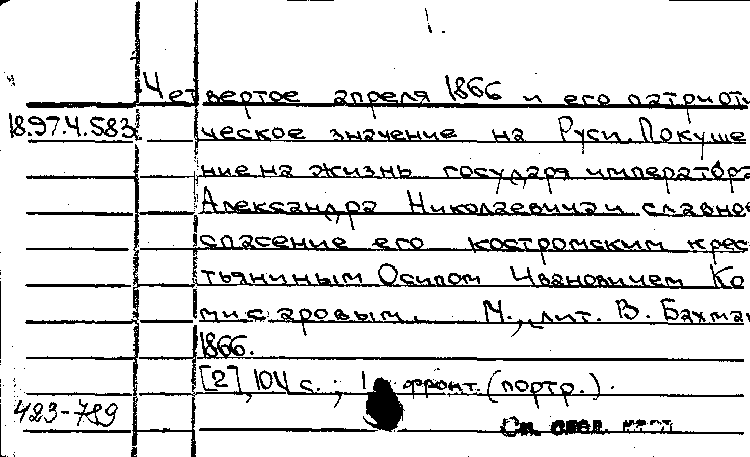 1.
Четвертое апреля 1866 и его патриоти
18.97.4.583 ческое значение на Руси. Покуше
ние на жизнь государя императора
Александра Николаевича и славное
спасение его костромским крес
тьянином Осипом Ивановичем Ко
мисаровым. М., лит. В. Бахман
1866.
[2], 104 с.; 1 фронт. (портр.).
423-789
См. след.